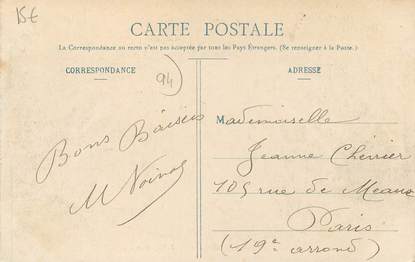 15€
CARTE POSTALE
La Correspondance au recto n'est pas acceptée par tous les Pays Étrangers. (Se renseigner à la Poste.)
CORRESPONDANCE
94
ADRESSE
Bons Baisers
M
Mademoiselle
Jeanne Cherrier
109 rue de Meaux
Paris
(19e arrond)